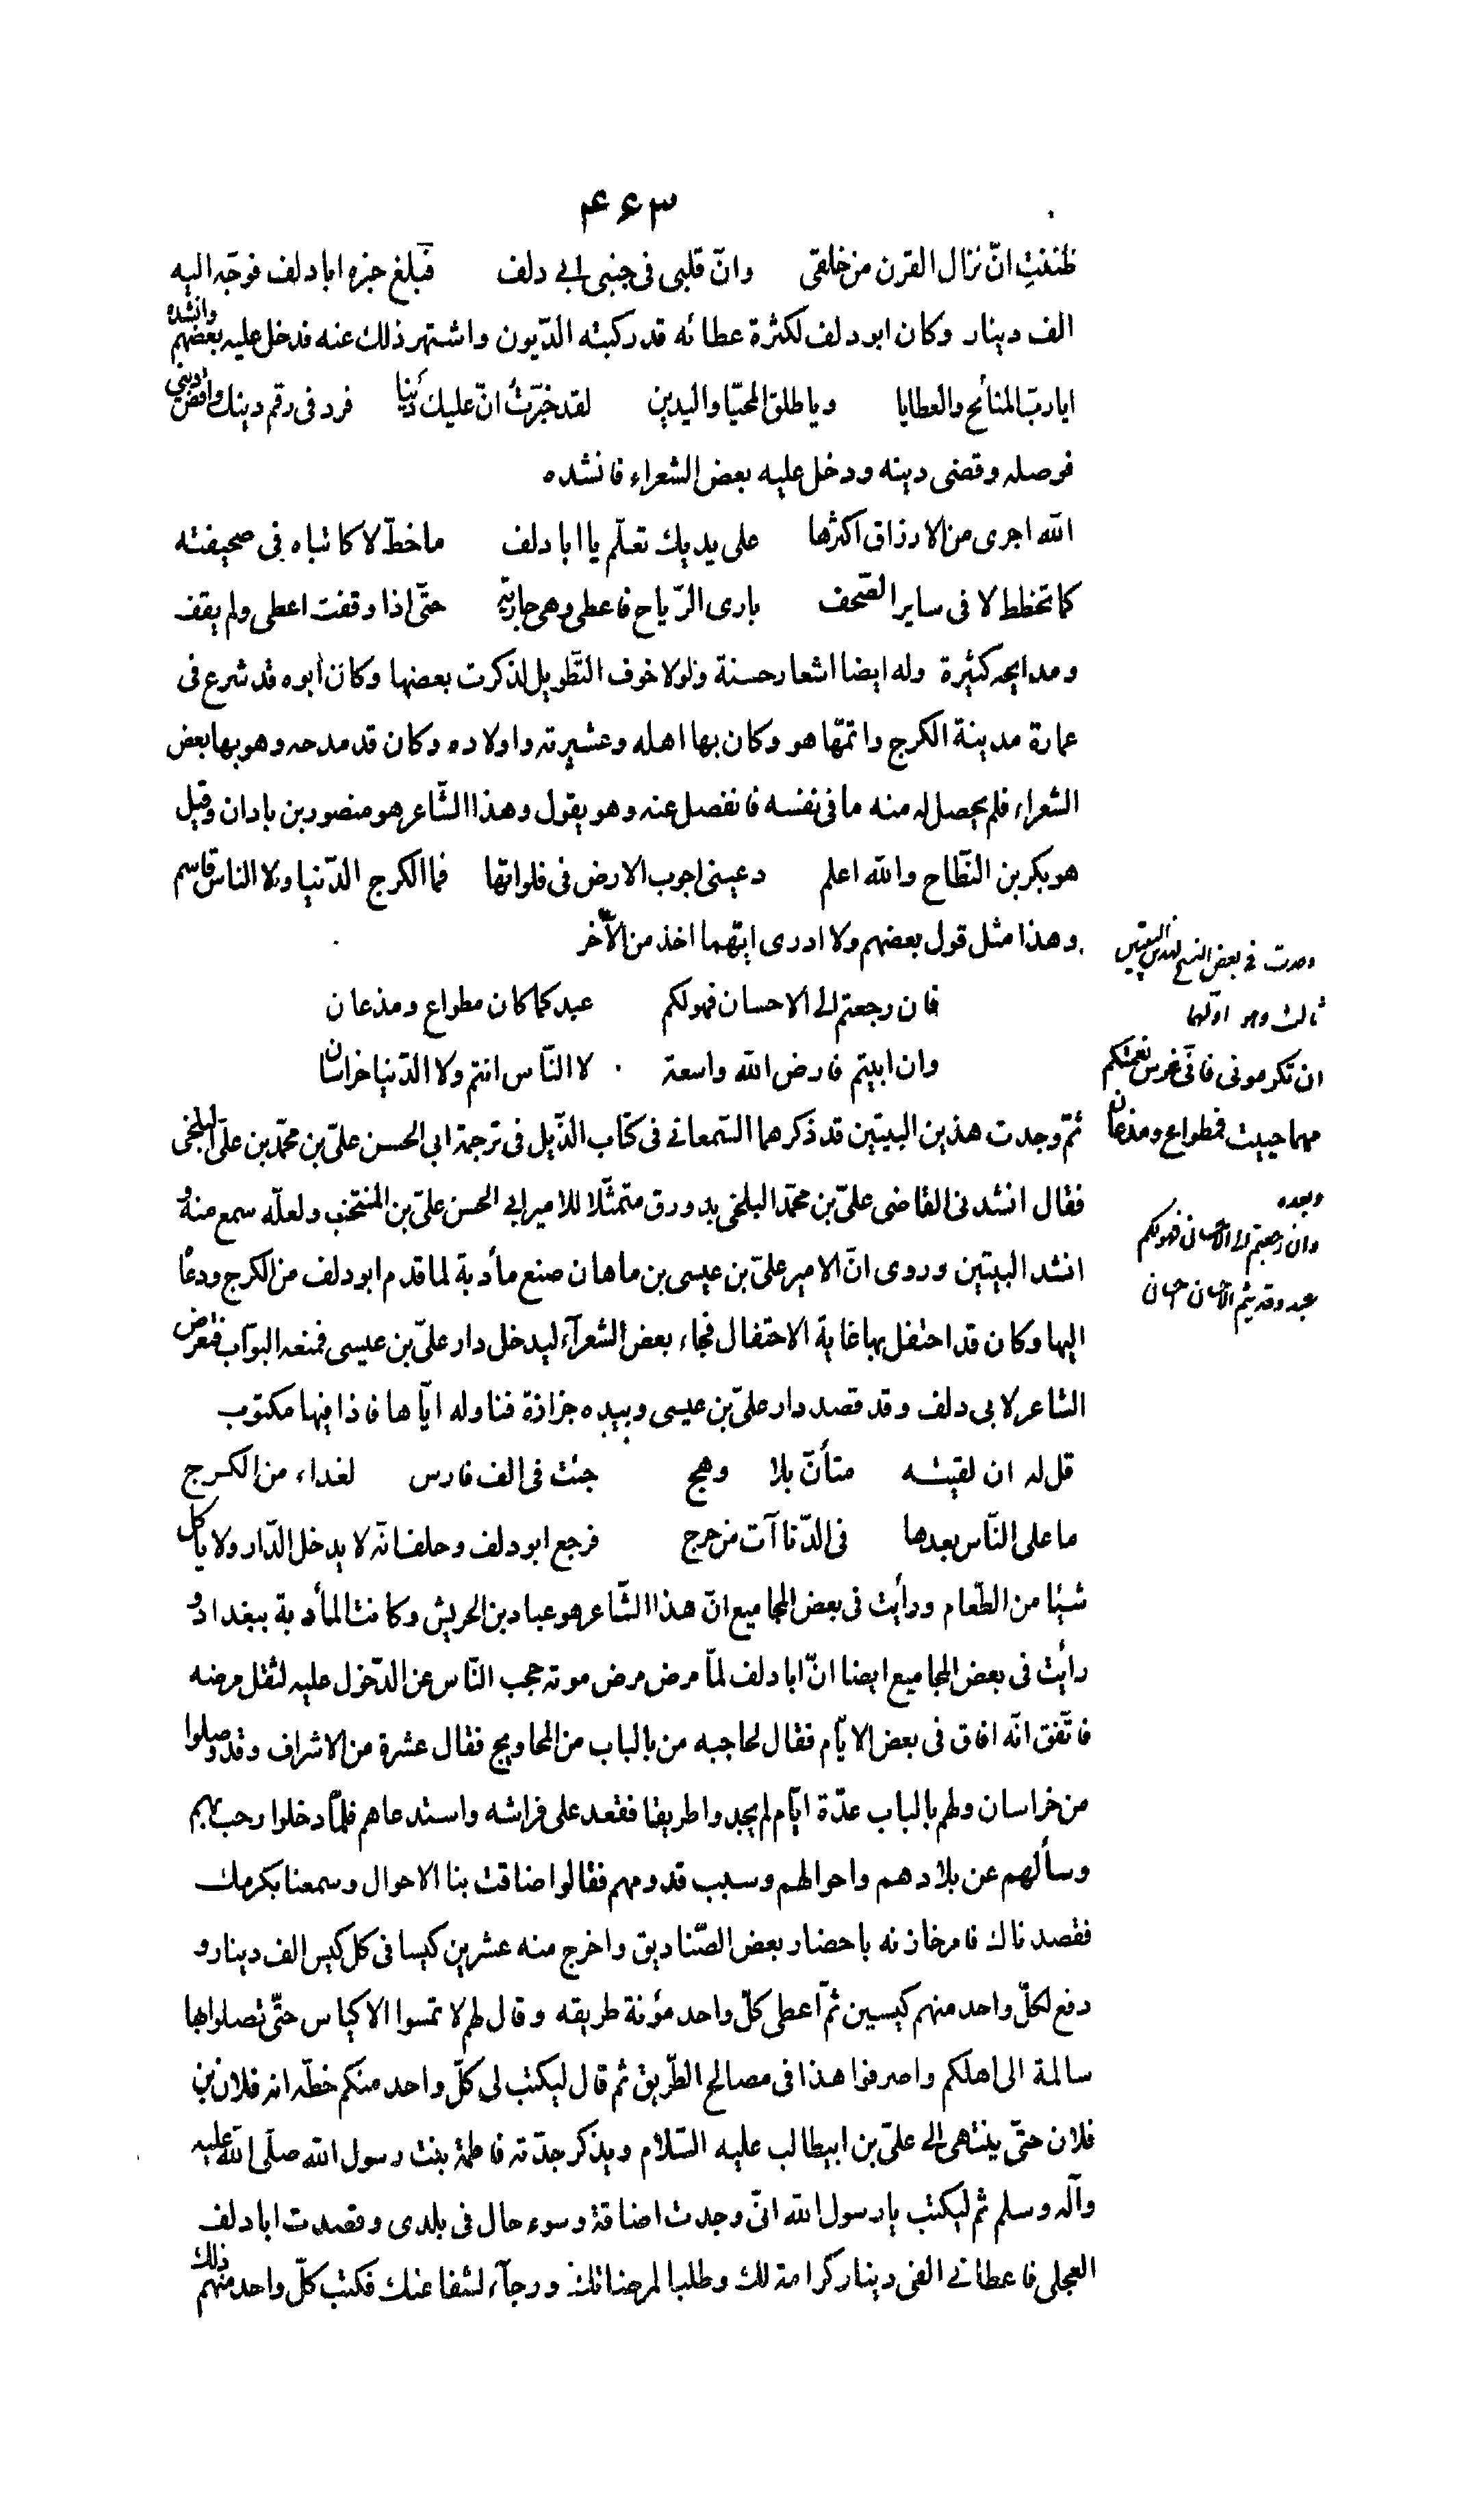 ۴۶۳
ظننتِ انّ نزال القرن من خلقی وانّ قلبی فی جنبی ابی دلف فبلغ خبره ابا دلف فوجّه الیه
الف دینار وکان ابو دلف لکثرة عطائه قد رکبته الدّیون واشتهر ذلك عنه فدخل علیه بعضهم وانشده
ایا ربّ المنائح والعطایا ویا طلق المحیّا والیدین لقد خبّرتُ انّ علیك دَینا فزد فی رقم دینك واقض دینی
فوصله وقضی دینه ودخل علیه بعض الشعراء فانشده
الله اجری من الارزاق اکثرها علی یدیك تعلّم یا ابا دلف ما خطّ لا کاتباه فی صحیفته
کما تخطط لا فی سایر الصّحف باری الرّیاح فاعطی وهی جاریة حتّی اذا وقفت اعطی ولم یقف
ومدایحه کثیرة وله ایضا اشعار حسنة ولولا خوف التّطویل لذکرت بعضها وکان ابوه قد شرع فی
عمارة مدینة الکرج واتمّها هو وکان بها اهله وعشیرته واولاده وکان قد مدحه وهو بها بعض
الشعراء فلم یحصل له منه ما فی نفسه فانفصل عنه وهو یقول وهذا الشّاعر هو منصور بن بادان وقیل
هو بکر بن النّطاح والله اعلم دعینی اجوب الارض فی فلواتها فما الکرج الدّنیا ولا الناس قاسم
وهذا مثل قول بعضهم ولا ادری ایّهما اخذ من الآخر
فان رجعتم الی الاحسان فهو لکم عبد کما کان مطواع ومذعان
وان ابیتم فارض الله واسعة لا النّاس انتم ولا الدّنیا خراسان
ثمّ وجدت هذین البیتین قد ذکرهما السّمعانی فی کتاب الذّیل فی ترجمة ابی الحسن علیّ بن محمّد بن علیّ البلخی
فقال انشدنی القاضی علیّ بن محمّد البلخی بدورق متمثّلا للامیر ابی الحسن علیّ بن المنتخب ولعلّه سمع منه و
انشد البیتین وروی انّ الامیر علیّ بن عیسی بن ماهان صنع مأدبة لما قدم ابو دلف من الکرج ودعا
الیها وکان قد احتفل بها غایة الاحتفال فجاء بعض الشعرآء لیدخل دار علیّ بن عیسی فمنعه البوّاب فتعرّض
الشاعر لابی دلف وقد قصد دار علیّ بن عیسی وبیده جزازة فناوله ایّاها فاذا فیها مکتوب
قل له ان لقیته متأنّ بلا وهج جئت فی الف فارس لغداء من الکرج
ما علی النّاس بعدها فی الدّناآت من حرج فرجع ابو دلف وحلف انّه لا یدخل الدّار ولا یأکل
شیئا من الطّعام ورأیت فی بعض المجامیع انّ هذا الشّاعر هو عباد بن الحریش وکانت المأدبة ببغداد و
رأیت فی بعض المجامیع ایضا انّ ابا دلف لمّا مرض مرض موته حجب النّاس عن الدّخول علیه لثقل مرضه
فاتّفق انّه افاق فی بعض الایّام فقال لحاجبه من بالباب من المحاویج فقال عشرة من الاشراف وقد وصلوا
من خراسان ولهم بالباب عدّة ایّام لم یجدوا طریقا فقعد علی فراشه واستدعاهم فلمّا دخلوا رحب بهم
وسألهم عن بلادهم واحوالهم وسبب قدومهم فقالوا ضاقت بنا الاحوال وسمعنا بکرمك
فقصدناك فامر خازنه باحضار بعض الصّنادیق واخرج منه عشرین کیسا فی کل کیس الف دینار و
دفع لکلّ واحد منهم کیسین ثمّ اعطی کلّ واحد مؤنة طریقه وقال لهم لا تمسوا الاکیاس حتّی تصلوا بها
سالمة الی اهلکم واصرفوا هذا فی مصالح الطّریق ثم قال لیکتب لی کلّ واحد منکم خطّه انه فلان بن
فلان حتّی ینتهی الی علیّ بن ابیطالب علیه السّلام ویذکر جدّته فاطمة بنت رسول الله صلّی الله علیه
وآله وسلم ثم لیکتب یا رسول الله انّی وجدت اضاقة وسوء حال فی بلدی وقصدت ابا دلف
العجلی فاعطانی الفی دینار کرامة لك وطلبا لمرضاتك ورجآء لشفاعتك فکتب کلّ واحد منهم ذلك
وجدت فی بعض النسخ لهذین البیتین
ثالث وهو اوّلهما
ان تکرمونی فانّی غرس نعمتکم
مهما حییت فمطواع ومذعان
وبعده
وان رجعتم الی الاحسان فهو لکم
عبد وقدیتم الاحسان